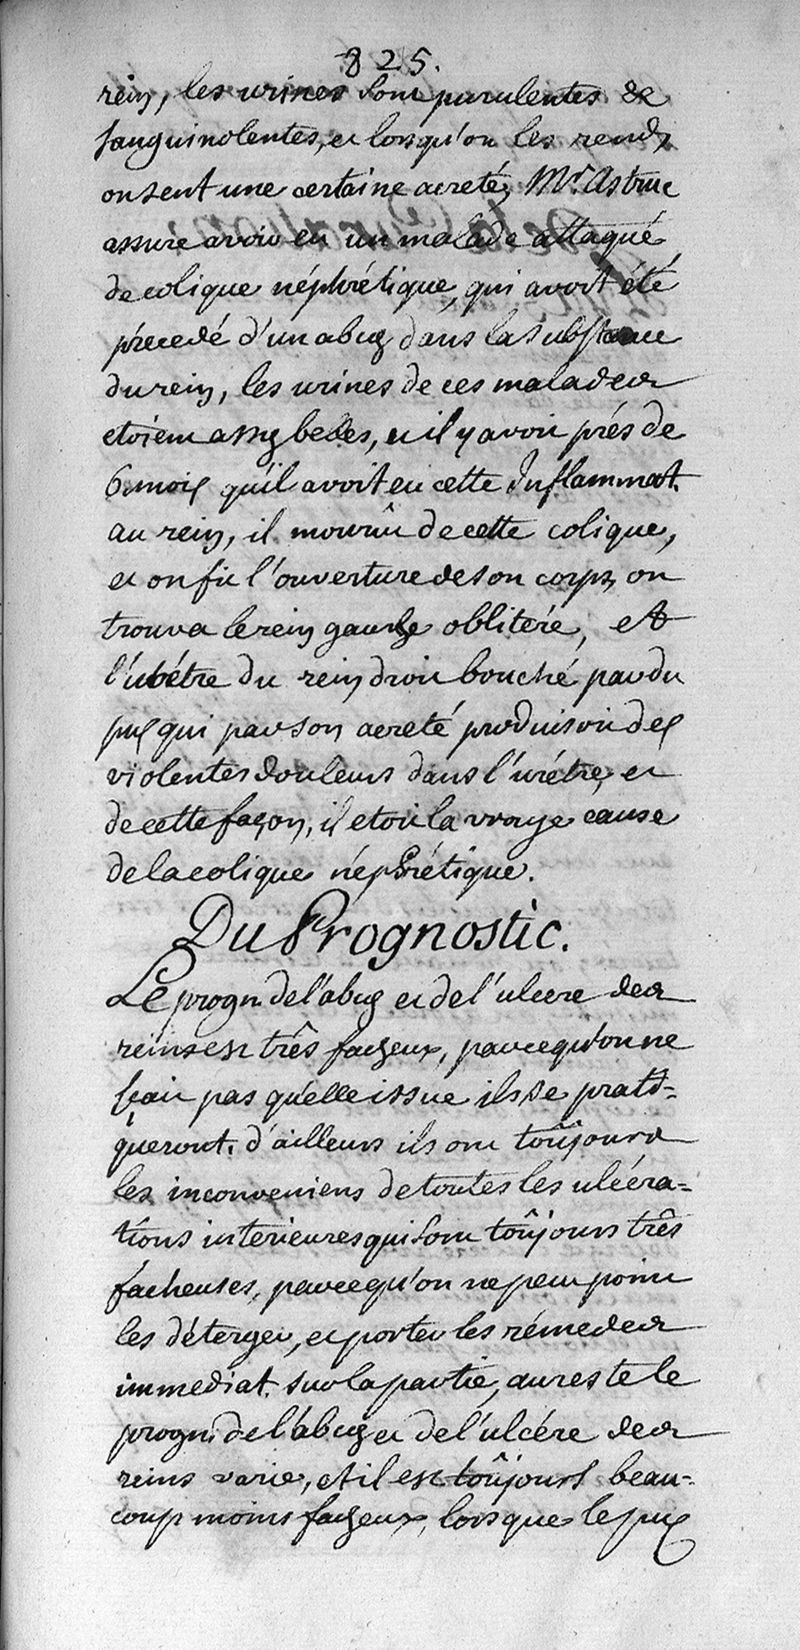 825.
rein, les urines sont purulentes &
sanguinolentes, et lorsqu'on les rend,
on sent une certaine acreté, Mr. Astruc
assure avoir eu un malade attaqué
de colique néphrétique, qui avoit été
précedé d'un abcez dans la substance
du rein, les urines de ces malades
etoient assez belles, et il y avoit prés de
6 mois qu'il avoit eu cette Inflammat.
au rein, il mourût de cette colique,
et on fit l'ouverture de son corps, on
trouva le rein gauche oblitéré, et
l'urétre du rein droit bouché par du
pus qui par son acreté produisoit des
violentes douleurs dans l'urétre, et
de cette façon, il etoit la vraye cause
de la colique néphrétique.
Du Prognostic.
Le progn. de l'abcez et de l'ulcere des
reins est três facheux, parcequ'on ne
sçait pas qu'elle issue ils se prati=
queront. d'ailleurs ils ont toûjours
les inconveniens de toutes les ulcéra=
tions interieures qui sont toûjours três
facheuses, parcequ'on ne peut point
les déterger, et porter les rémedes
immediat. sur la partie, au reste le
progn. de l'abcez et de l'ulcére des
reins varie, et il est toûjours beau-
coup moins facheux, lorsque le pus